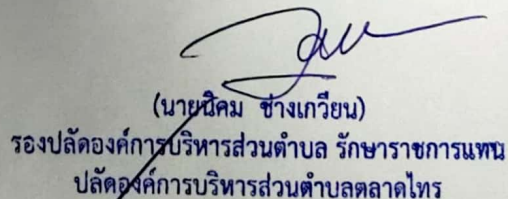 (นายนิคม ช่างเกวียน)
รองปลัดองค์การบริหารส่วนตำบล รักษาราชการแทน
ปลัดองค์การบริหารส่วนตำบลตลาดไทร